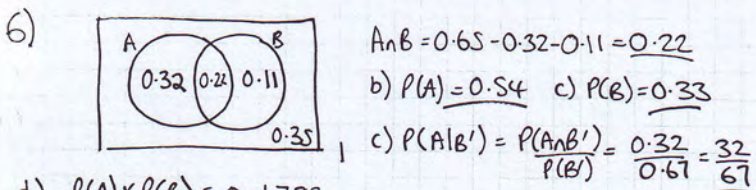 6)
A B
0.32 0.22 0.11
0.35
1
A∩B = 0.65 - 0.32 - 0.11 = 0.22
b) P(A) = 0.54 c) P(B) = 0.33
c) P(A|B') = P(A∩B') / P(B') = 0.32 / 0.67 = 32 / 67